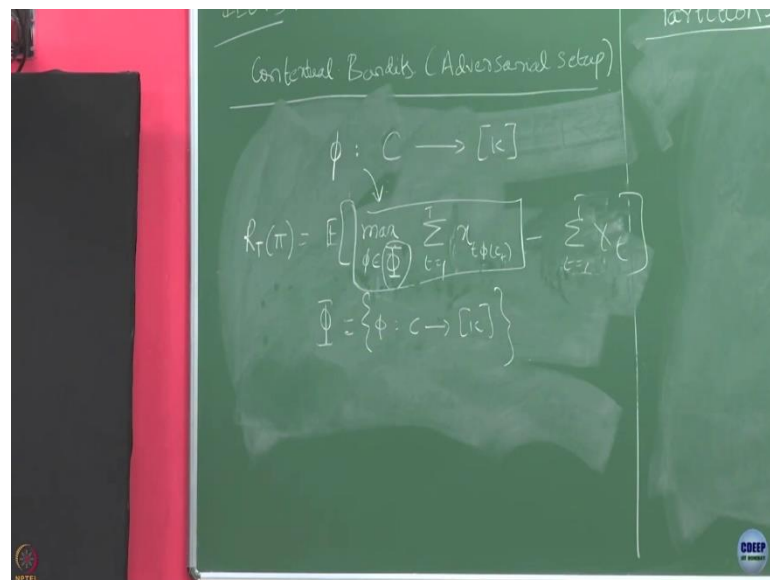 Contextual Bandits (Adversarial Setup)
ϕ : C → [K]
R_T(π) = E[ max_{ϕ∈Φ} ∑_{t=1}^{T} x_{tϕ(c_t)} - ∑_{t=1}^{T} X_t ]
Φ = {ϕ : C → [K]}
NPTEL
CDEEP